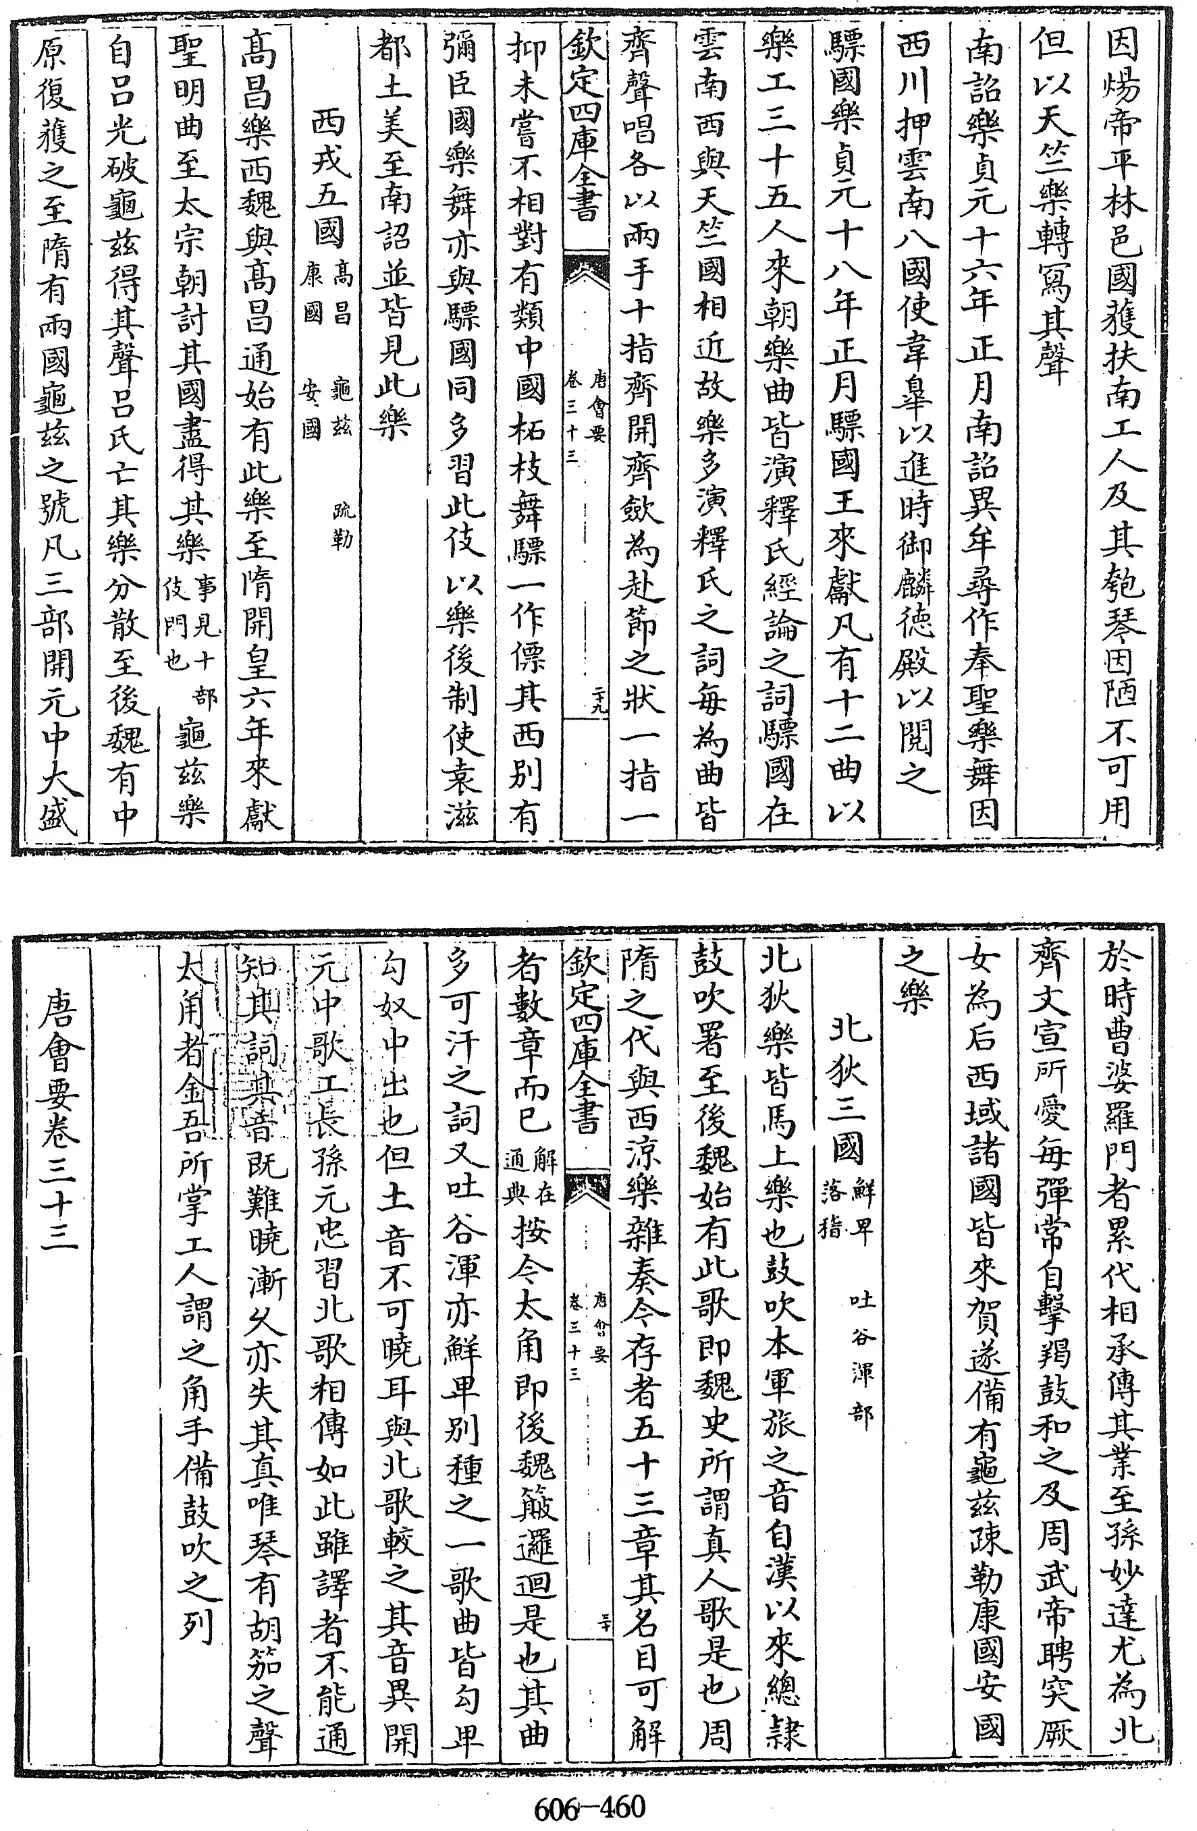 因煬帝平林邑國獲扶南工人及其匏琴因陋不可用
但以天竺樂轉寫其聲
南詔樂貞元十六年正月南詔異牟尋作奉聖樂舞因
西川押雲南八國使韋臯以進時御麟德殿以閱之
驃國樂貞元十八年正月驃國王來獻凡有十二曲以
樂工三十五人來朝樂曲皆演釋氏經論之詞驃國在
雲南西與天竺國相近故樂多演釋氏之詞每為曲皆
齊聲唱各以兩手十指齊開齊斂為赴節之狀一指一
欽定四庫全書
唐會要
卷三十三
二十九
抑未嘗不相對有類中國柘枝舞驃一作僄其西别有
彌臣國樂舞亦與驃國同多習此伎以樂後制使袁滋
都土美至南詔並皆見此樂
西戎五國 高昌 龜兹 疏勒
康國 安國
高昌樂西魏與高昌通始有此樂至隋開皇六年來獻
聖明曲至太宗朝討其國盡得其樂 事見十部
伎門也 龜兹樂
自吕光破龜兹得其聲吕氏亡其樂分散至後魏有中
原復獲之至隋有兩國龜兹之號凡三部開元中大盛
於時曹婆羅門者累代相承傳其業至孫妙達尤為北
齊文宣所愛每彈常自擊羯鼓和之及周武帝聘突厥
女為后西域諸國皆來賀遂備有龜兹疎勒康國安國
之樂
北狄三國 鮮卑 吐谷渾部
落稽
北狄樂皆馬上樂也鼓吹本軍旅之音自漢以來總隸
鼓吹署至後魏始有此歌即魏史所謂真人歌是也周
隋之代與西涼樂雜奏今存者五十三章其名目可解
欽定四庫全書
唐會要
卷三十三
三十
者數章而已 解在
通典 按今太角即後魏簸邏迴是也其曲
多可汗之詞又吐谷渾亦鮮卑别種之一歌曲皆匈卑
匈奴中出也但土音不可曉耳與北歌較之其音異開
元中歌工長孫元忠習北歌相傳如此雖譯者不能通
知其詞典音既難曉漸久亦失其真唯琴有胡笳之聲
太角者金吾所掌工人謂之角手備鼓吹之列
唐會要卷三十三
606-460